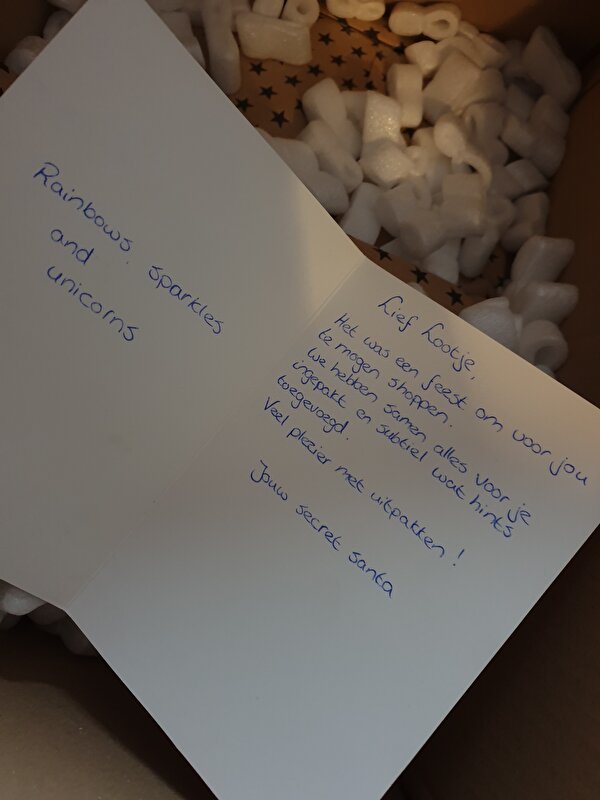 Rainbows, sparkles
and
unicorns
Lief Lootje,
Het was een feest om voor jou
te mogen shoppen.
We hebben samen alles voor je
ingepakt en subtiel wat hints
toegevoegd.
Veel plezier met uitpakken!
Jouw secret santa